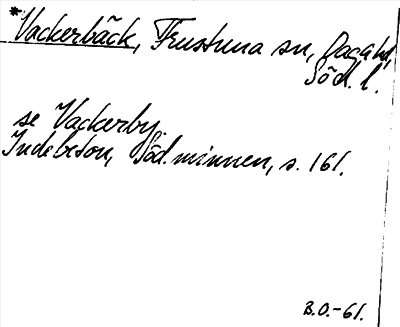 *Vackerbäck, Frustuna sn, Daga hd,
Söd. l.
se Vackerby.
Indebetou, Söd. minnen, s. 161.
B.O.-61.